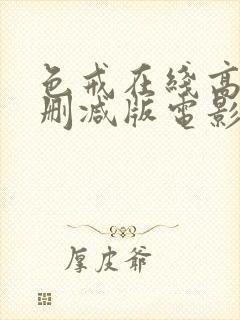 色戒在线高
删减版电影
厚皮爷